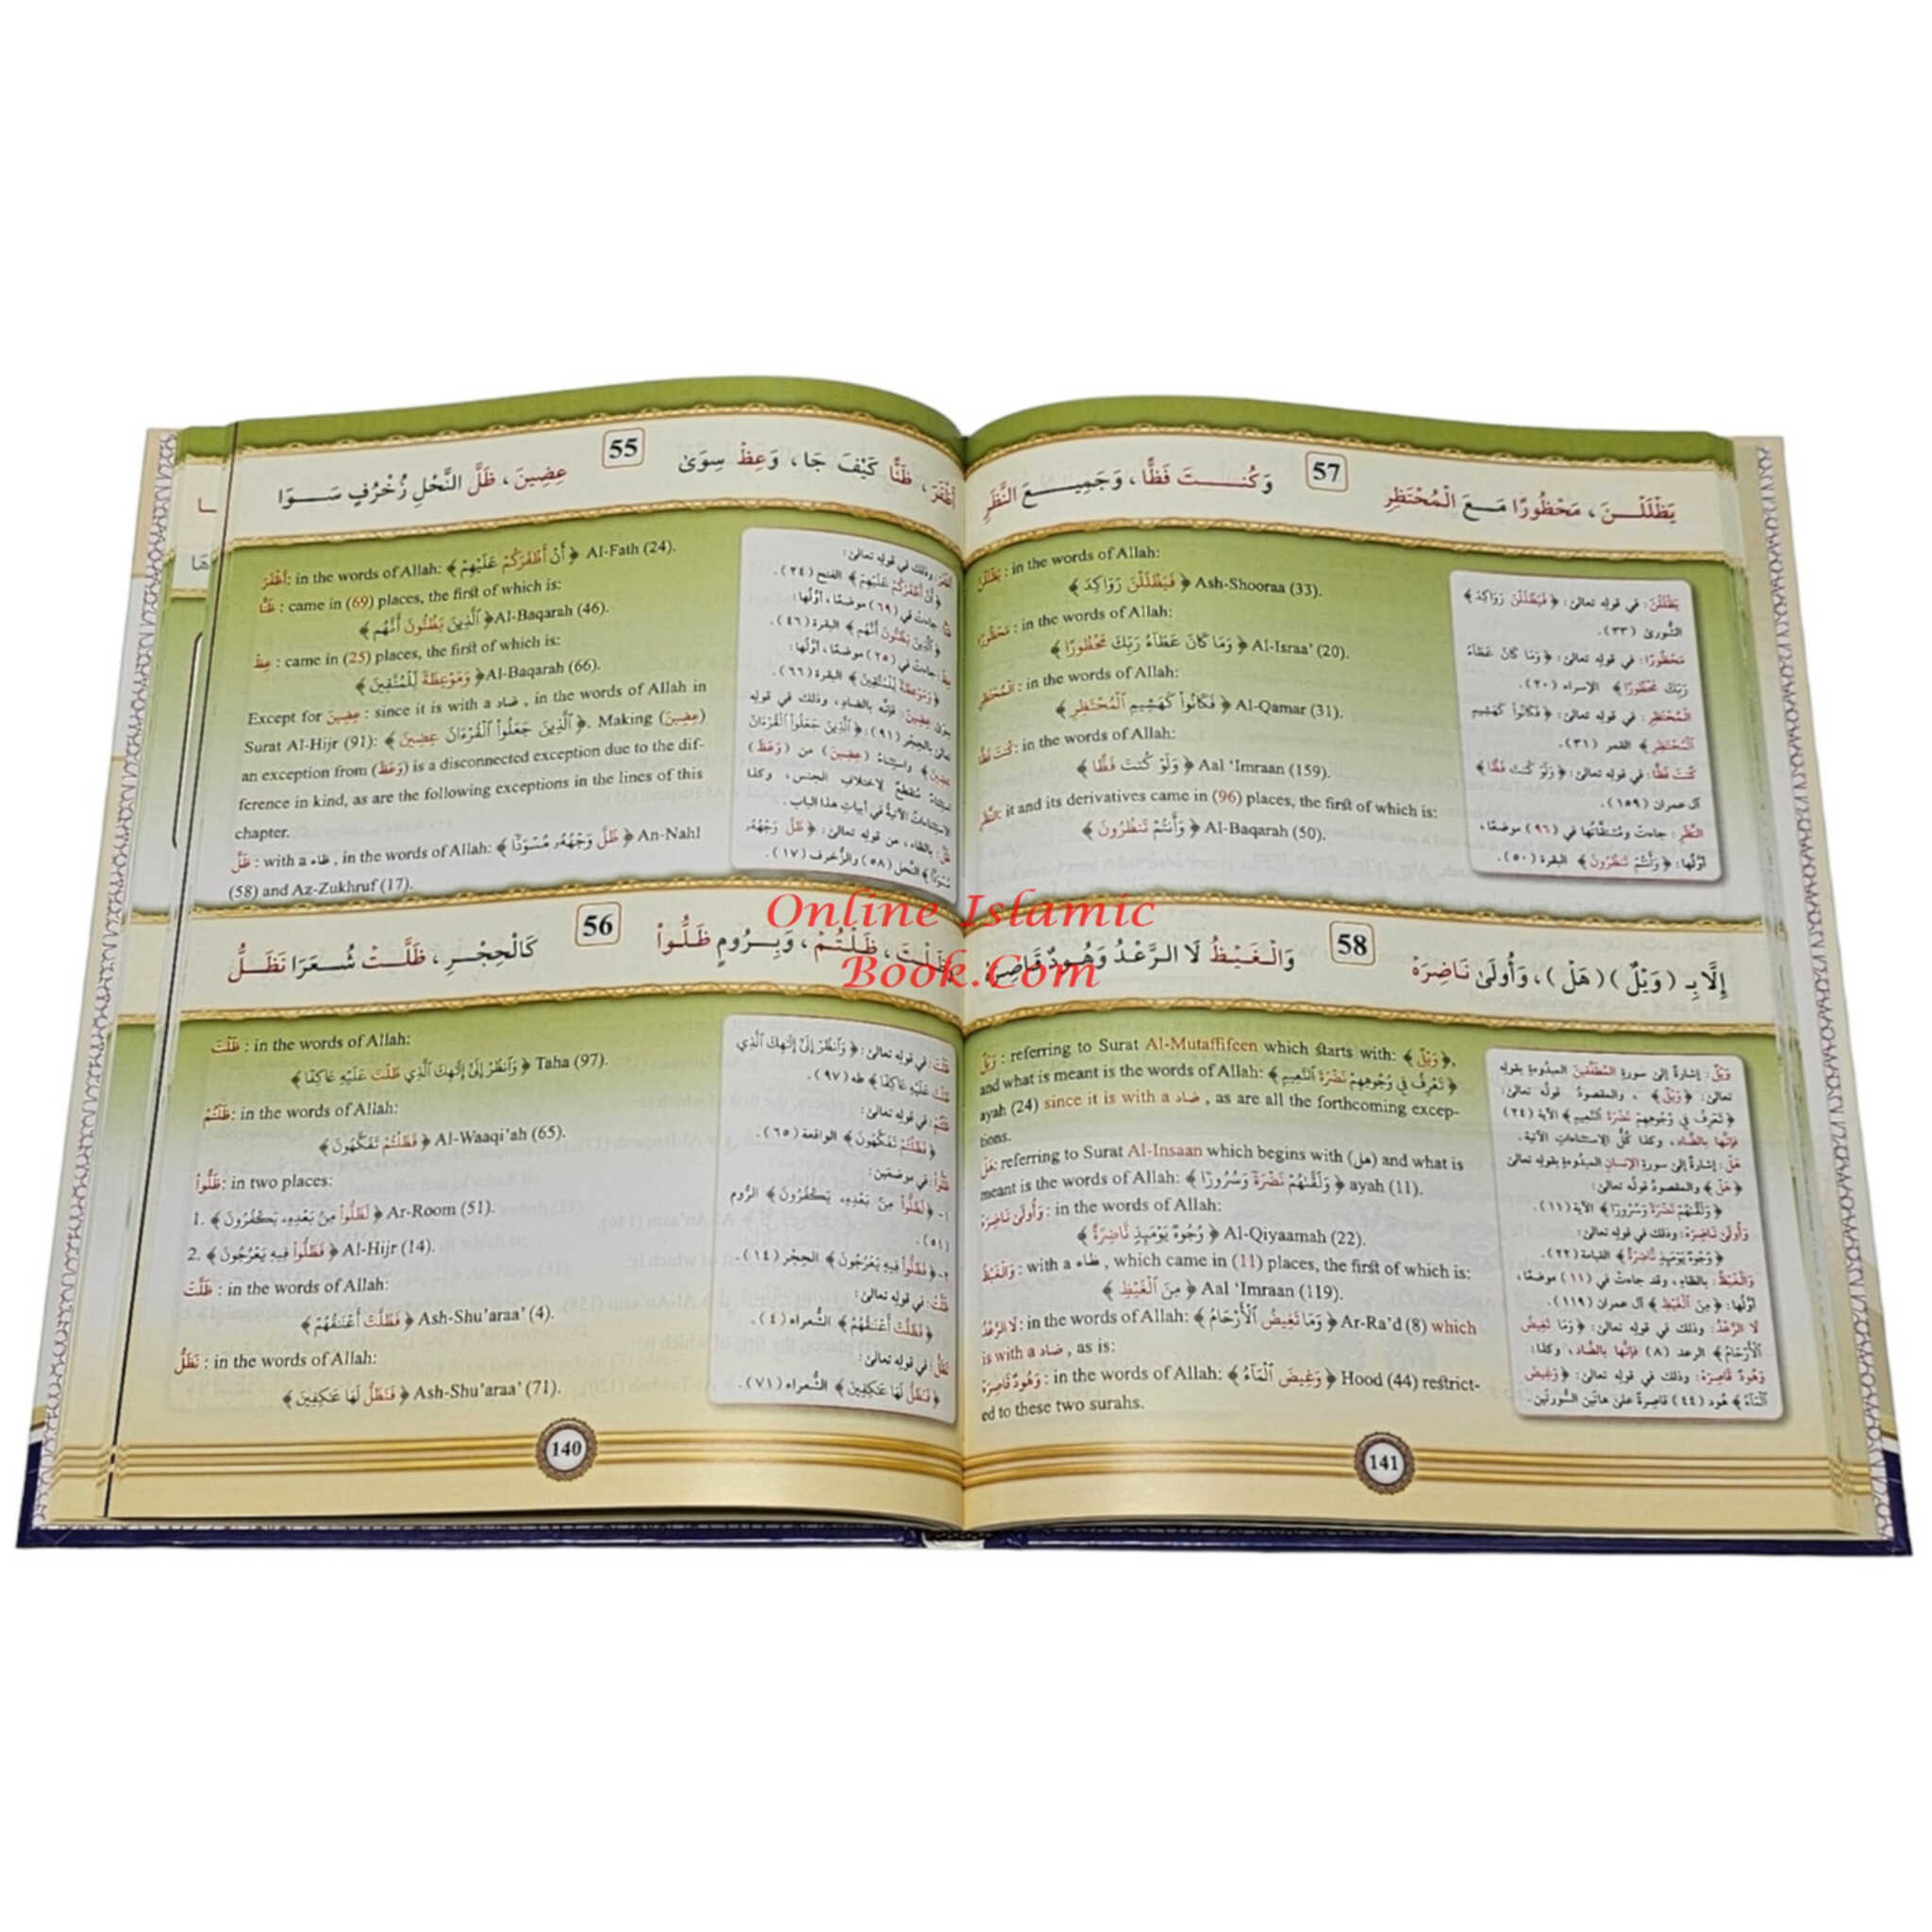 55
أَظْفَرَ ، ظَنًّا كَيْفَ جَا ، وَعِظْ سِوَىٰ
عِضِينَ ، ظَلَّ النَّحْلِ زُخْرُفٍ سَوَا
أَظْفَرَ: in the words of Allah: ﴿أَنْ أَظْفَرَكُمْ عَلَيْهِمْ﴾ Al-Fath (24).
ظَنًّا : came in (69) places, the first of which is:
﴿ٱلَّذِينَ يَظُنُّونَ أَنَّهُم﴾ Al-Baqarah (46).
عِظْ : came in (25) places, the first of which is:
﴿وَمَوْعِظَةً لِّلْمُتَّقِينَ﴾ Al-Baqarah (66).
Except for عِضِينَ : since it is with a ضاد , in the words of Allah in
Surat Al-Hijr (91): ﴿ٱلَّذِينَ جَعَلُوا۟ ٱلْقُرْءَانَ عِضِينَ﴾. Making (عِضِينَ)
an exception from (وَعَظَ) is a disconnected exception due to the dif-
ference in kind, as are the following exceptions in the lines of this
chapter.
ظَلَّ : with a ظاء , in the words of Allah: ﴿ظَلَّ وَجْهُهُۥ مُسْوَدًّا﴾ An-Nahl
(58) and Az-Zukhruf (17).
أَظْفَرَ: وذلك في قوله تعالىٰ:
﴿أَنْ أَظْفَرَكُمْ عَلَيْهِمْ﴾ الفتح (٢٤).
ظَنًّا: جاءتْ في (٦٩) موضعًا، أوّلُها:
﴿ٱلَّذِينَ يَظُنُّونَ أَنَّهُم﴾ البقرة (٤٦).
عِظْ: جاءتْ في (٢٥) موضعًا، أوّلُها:
﴿وَمَوْعِظَةً لِّلْمُتَّقِينَ﴾ البقرة (٦٦).
سِوَىٰ عِضِينَ: فإنّه بالضاد، وذلك في قوله
تعالىٰ بالحِجْر (٩١): ﴿ٱلَّذِينَ جَعَلُوا۟ ٱلْقُرْءَانَ
عِضِينَ﴾ واستثناءُ (عِضِينَ) من (وَعَظَ)
استثناءٌ مُنقطعٌ لاختلافِ الجنس، وكذا
الاستثناءاتُ الآتيةُ في أبياتِ هذا الباب.
ظَلَّ: بالظاء، من قوله تعالىٰ: ﴿ظَلَّ وَجْهُهُۥ
مُسْوَدًّا﴾ النَّحل (٥٨) والزُّخرف (١٧).
56
وَظَلْتَ، ظَلْتُمْ ، وَبِرُومٍ ظَلُّوا۟
كَالْحِجْرِ ، ظَلَّتْ شُعَرَا نَظَلُّ
ظَلْتَ : in the words of Allah:
﴿وَٱنظُرْ إِلَىٰٓ إِلَٰهِكَ ٱلَّذِى ظَلْتَ عَلَيْهِ عَاكِفًا﴾ Taha (97).
ظَلْتُمْ: in the words of Allah:
﴿فَظَلْتُمْ تَفَكَّهُونَ﴾ Al-Waaqi'ah (65).
ظَلُّوا۟: in two places:
1. ﴿لَّظَلُّوا۟ مِنۢ بَعْدِهِۦ يَكْفُرُونَ﴾ Ar-Room (51).
2. ﴿فَظَلُّوا۟ فِيهِ يَعْرُجُونَ﴾ Al-Hijr (14).
ظَلَّتْ : in the words of Allah:
﴿فَظَلَّتْ أَعْنَٰقُهُمْ﴾ Ash-Shu'araa' (4).
نَظَلُّ : in the words of Allah:
﴿فَنَظَلُّ لَهَا عَٰكِفِينَ﴾ Ash-Shu'araa' (71).
ظَلْتَ: في قوله تعالىٰ: ﴿وَٱنظُرْ إِلَىٰٓ إِلَٰهِكَ ٱلَّذِى
ظَلْتَ عَلَيْهِ عَاكِفًا﴾ طه (٩٧).
ظَلْتُمْ: في قوله تعالىٰ:
﴿فَظَلْتُمْ تَفَكَّهُونَ﴾ الواقعة (٦٥).
ظَلُّوا۟: في موضعين:
١- ﴿لَّظَلُّوا۟ مِنۢ بَعْدِهِۦ يَكْفُرُونَ﴾ الرُّوم
(٥١).
٢- ﴿فَظَلُّوا۟ فِيهِ يَعْرُجُونَ﴾ الحِجْر (١٤).
ظَلَّتْ: في قوله تعالىٰ:
﴿فَظَلَّتْ أَعْنَٰقُهُمْ﴾ الشُّعراء (٤).
نَظَلُّ: في قوله تعالىٰ:
﴿فَنَظَلُّ لَهَا عَٰكِفِينَ﴾ الشُّعراء (٧١).
140
57
يَظْلَلْنَ ، مَحْظُورًا مَعَ الْمُحْتَظِرِ
وَكُنتَ فَظًّا ، وَجَمِيعَ النَّظَرِ
يَظْلَلْنَ : in the words of Allah:
﴿فَيَظْلَلْنَ رَوَاكِدَ﴾ Ash-Shooraa (33).
مَحْظُورًا : in the words of Allah:
﴿وَمَا كَانَ عَطَآءُ رَبِّكَ مَحْظُورًا﴾ Al-Israa' (20).
الْمُحْتَظِرِ : in the words of Allah:
﴿فَكَانُوا۟ كَهَشِيمِ ٱلْمُحْتَظِرِ﴾ Al-Qamar (31).
كُنتَ فَظًّا: in the words of Allah:
﴿وَلَوْ كُنتَ فَظًّا﴾ Aal 'Imraan (159).
النَّظَرِ: it and its derivatives came in (96) places, the first of which is:
﴿وَأَنتُمْ تَنظُرُونَ﴾ Al-Baqarah (50).
يَظْلَلْنَ: في قوله تعالىٰ: ﴿فَيَظْلَلْنَ رَوَاكِدَ﴾
الشُّورىٰ (٣٣).
مَحْظُورًا: في قوله تعالىٰ: ﴿وَمَا كَانَ عَطَآءُ
رَبِّكَ مَحْظُورًا﴾ الإسراء (٢٠).
الْمُحْتَظِرِ: في قوله تعالىٰ: ﴿فَكَانُوا۟ كَهَشِيمِ
ٱلْمُحْتَظِرِ﴾ القمر (٣١).
كُنتَ فَظًّا: في قوله تعالىٰ: ﴿وَلَوْ كُنتَ فَظًّا﴾
آل عمران (١٥٩).
النَّظَرِ: جاءتْ ومُشتقّاتُها في (٩٦) موضعًا،
أوّلُها: ﴿وَأَنتُمْ تَنظُرُونَ﴾ البقرة (٥٠).
58
إِلَّا بِـ (وَيْلٌ) (هَلْ)، وَأُولَىٰ نَاضِرَهْ
وَالْغَيْظُ لَا الرَّعْدُ وَهُودٌ قَاصِرَهْ
وَيْلٌ : referring to Surat Al-Mutaffifeen which starts with: ﴿وَيْلٌ﴾,
and what is meant is the words of Allah: ﴿تَعْرِفُ فِى وُجُوهِهِمْ نَضْرَةَ ٱلنَّعِيمِ﴾
ayah (24) since it is with a ضاد , as are all the forthcoming excep-
tions.
هَلْ: referring to Surat Al-Insaan which begins with (هل) and what is
meant is the words of Allah: ﴿وَلَقَّىٰهُمْ نَضْرَةً وَسُرُورًا﴾ ayah (11).
وَأُولَىٰ نَاضِرَهْ : in the words of Allah:
﴿وُجُوهٌ يَوْمَئِذٍ نَّاضِرَةٌ﴾ Al-Qiyaamah (22).
وَالْغَيْظُ : with a ظاء , which came in (11) places, the first of which is:
﴿مِنَ ٱلْغَيْظِ﴾ Aal 'Imraan (119).
لَا الرَّعْدُ: in the words of Allah: ﴿وَمَا تَغِيضُ ٱلْأَرْحَامُ﴾ Ar-Ra'd (8) which
is with a ضاد , as is:
وَهُودٌ قَاصِرَهْ : in the words of Allah: ﴿وَغِيضَ ٱلْمَآءُ﴾ Hood (44) restrict-
ed to these two surahs.
وَيْلٌ: إشارةٌ إلىٰ سورةِ المُطفِّفين المبدُوءةِ بقوله
تعالىٰ: ﴿وَيْلٌ﴾ ، والمقصودُ قولُه تعالىٰ:
﴿تَعْرِفُ فِى وُجُوهِهِمْ نَضْرَةَ ٱلنَّعِيمِ﴾ الآية (٢٤)
فإنّها بالضّاد، وكذا كُلُّ الاستثناءاتِ الآتية.
هَلْ: إشارةٌ إلىٰ سورةِ الإنسان المبدُوءةِ بقوله تعالىٰ
﴿هَلْ﴾ والمقصودُ قولُه تعالىٰ:
﴿وَلَقَّىٰهُمْ نَضْرَةً وَسُرُورًا﴾ الآية (١١).
وَأُولَىٰ نَاضِرَهْ: وذلك في قوله تعالىٰ:
﴿وُجُوهٌ يَوْمَئِذٍ نَّاضِرَةٌ﴾ القيامة (٢٢).
وَالْغَيْظُ: بالظاء، وقد جاءتْ في (١١) موضعًا،
أوّلُها: ﴿مِنَ ٱلْغَيْظِ﴾ آل عمران (١١٩).
لَا الرَّعْدُ: وذلك في قوله تعالىٰ: ﴿وَمَا تَغِيضُ
ٱلْأَرْحَامُ﴾ الرعد (٨) فإنّها بالضّاد، وكذا:
وَهُودٌ قَاصِرَهْ: وذلك في قوله تعالىٰ: ﴿وَغِيضَ
ٱلْمَآءُ﴾ هُود (٤٤) قاصِرةٌ علىٰ هاتَين السُّورتَين.
141
Online Islamic
Book.Com